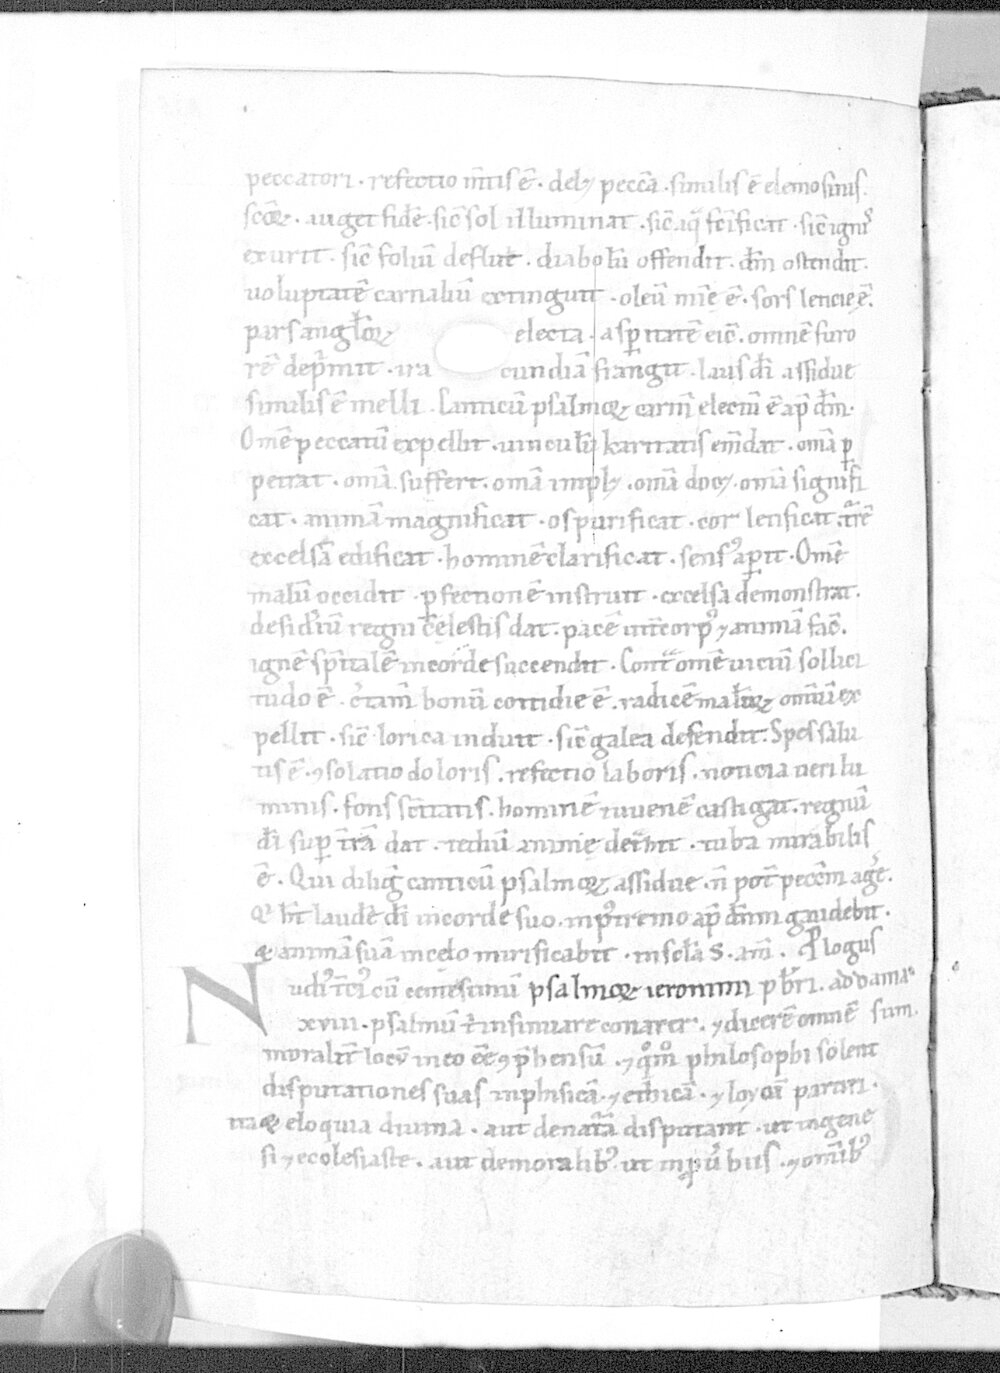 peccatori · refectio m̄tis ē · delꝫ pecc̄a · similis ē elemosinis.
sc̄oꝝ · auget fidē · sic̄ sol illuminat · sic̄ aq̄ sc̄ificat · sic̄ ignꝰ
exurit · sic̄ foliū defluit · diabolū offendit · dn̄m ostendit ·
uoluptatē carnaliū extinguit · oleū mīe ē · sors leticie ē.
pars anglōꝝ electa · asꝑitatē eic̄ · omnē furo
rē dep̄mit · ira cundiā frangit · laus dī assidue
similis ē melli · Canticū psalmoꝝ carm̄ electū ē ap̄ dn̄m ·
Omē peccatū expellit · uinculū karitatis em̄dat · om̄a ꝑ
petrat · om̄a suffert · om̄a implꝫ · om̄a docꝫ · om̄a signifi
cat · animā magnificat · os purificat · cor letificat · t̄rē
excelsā edificat · hominē clarificat · sensꝰ aꝑit · Omē
malū occidit · ꝑfectionē instruit · excelsa demonstrat ·
desid̄iū regni cęlestis dat · pacē int̄ corpꝰ ⁊ animā fac̄ ·
ignē sp̄italē in corde succendit · Cont̄ omē uiciū sollici
tudo ē · c̄tam̄ bonū cottidie ē · radicē malōꝝ om̄iū ex
pellit · sic̄ lorica induit · sic̄ galea defendit · Spes salu
tis ē · ꝯsolatio doloris · refectio laboris · noticia ueri lu
minis · fons sc̄itatis · hominē iuuenē castigat · regnū
dī suꝑ t̄rā dat · tediū animę det̄hit · tuba mirabilis
ē · Qui diliḡ canticū psalmoꝝ assidue · n̄ pot̄ pecc̄m agē.
Q̄ h̄t laudē dī in corde suo · in pꝰtremo ap̄ dn̄m gaudebit ·
⁊ animā suā in cęlo mirificabit · in scl̄a s · am̄ · P̄logus
Nudiꝰ t̄ciꝰ cū centesimū psalmoꝝ ieronimi pb̄ri · ad dama
xviii · psalmū t̄ insinuare conarer · ⁊ dicerē omnē sum ·
moralit̄ locū in eo ēē ꝯp̄hensū · ⁊ qm̄ philosophi solent
disputationes suas in phisicā · ⁊ ethicā · ⁊ loycā partiri ·
itaq; eloquia diuina · aut de nat̄a disputant · ut in gene
si ⁊ ecclesiaste · aut de moralibꝰ · ut in prouerbiis · ⁊ om̄ibꝰ